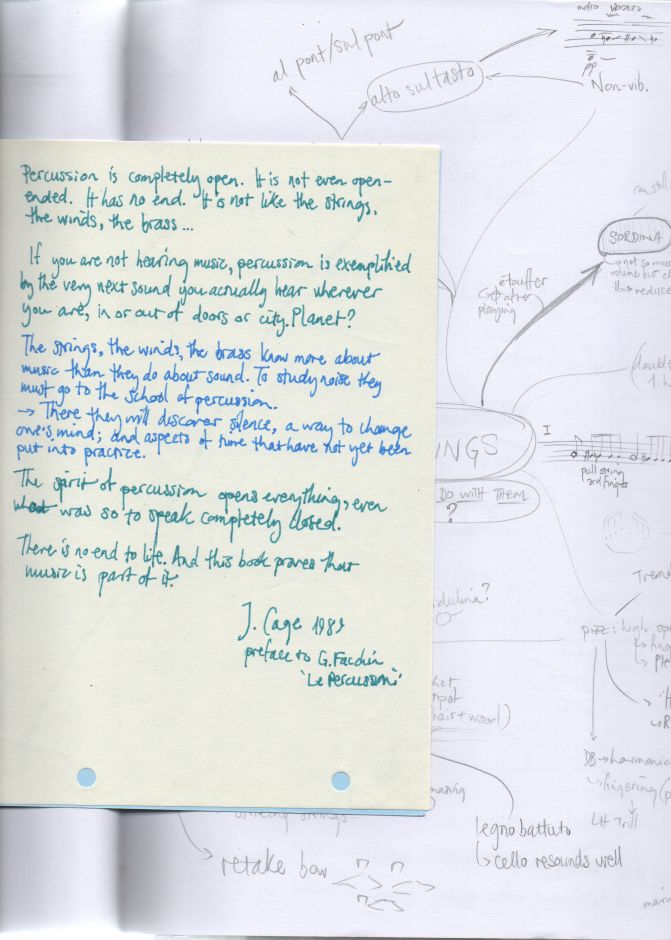 al pont/sul pont
alto sul tasto
molto vibrato
pp
Non-vib.
Percussion is completely open. It is not even open-
ended. It has no end. It is not like the strings,
the winds, the brass ...
If you are not hearing music, percussion is exemplified
by the very next sound you actually hear wherever
you are, in or out of doors or city. Planet?
The strings, the winds, the brass know more about
music than they do about sound. To study noise they
must go to the school of percussion.
→ There they will discover silence, a way to change
one's mind; and aspects of time that have not yet been
put into practice.
The spirit of percussion opens everything, even
what was so to speak completely closed.
There is no end to life. And this book proves that
music is part of it.
J. Cage 1989
preface to G. Facchin
'Le Percussioni'
SORDINA
→ not so much
volume but
→ reduce
étouffer
after
playing
I
NGS
DO WITH THEM
?
pull string
and finger
pizz: high
DB → harmonic
→ fingering
LH Trill
hair + wood)
legno battuto
↳ cello resounds well
retake bow